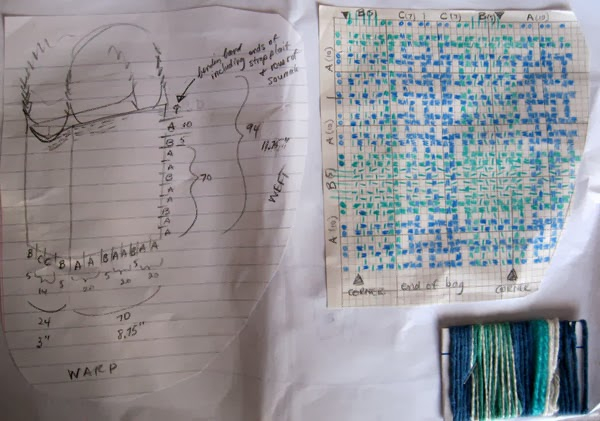 border band
including ends of
strap plait
+ row of
soumak
A 10
B 5
A
A
B
A
A
B
A
A
70
94
11.75"
WEFT
B C C B A A B A A B A A
5 14 5 20 5 20 5 20
24
3"
70
8.75"
WARP
B(5) C(7) C(7) B(5) A(10)
A(10)
A(10)
B(5)
A(10)
CORNER end of bag CORNER